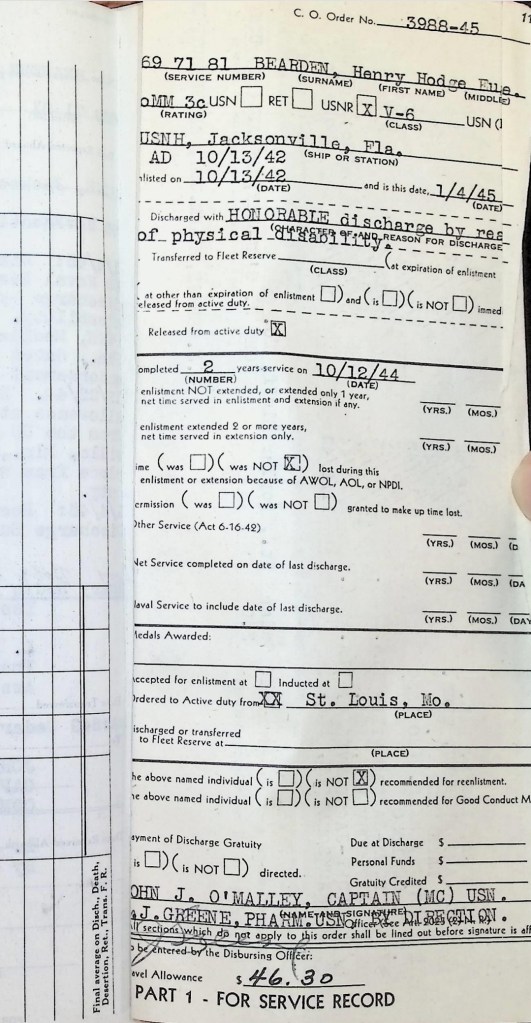 C. O. Order No. 3988-45
69 71 81 BEARDEN, Henry Hodge Eue.
(SERVICE NUMBER) (SURNAME) (FIRST NAME) (MIDDLE)
oMM 3c USN RET USNR X V-6 USN (I
(RATING) (CLASS)
USNH, Jacksonville, Fla.
AD 10/13/42 (SHIP OR STATION)
nlisted on 10/13/42 and is this date, 1/4/45
(DATE) (DATE)
Discharged with HONORABLE discharge by reas
of physical disability.
(CHARACTER OF AND REASON FOR DISCHARGE
Transferred to Fleet Reserve (at expiration of enlistment
(CLASS)
at other than expiration of enlistment ) and ( is ) ( is NOT ) immed
eleased from active duty.
Released from active duty X
ompleted 2 years service on 10/12/44
(NUMBER) (DATE)
enlistment NOT extended, or extended only 1 year,
net time served in enlistment and extension if any. (YRS.) (MOS.)
enlistment extended 2 or more years,
net time served in extension only. (YRS.) (MOS.)
ime ( was ) ( was NOT X ) lost during this
enlistment or extension because of AWOL, AOL, or NPDI.
ermission ( was ) ( was NOT ) granted to make up time lost.
Other Service (Act 6-16-42)
(YRS.) (MOS.) (D
Net Service completed on date of last discharge.
(YRS.) (MOS.) (DA
Naval Service to include date of last discharge.
(YRS.) (MOS.) (DAY
Medals Awarded:
Accepted for enlistment at Inducted at
Ordered to Active duty from XX St. Louis, Mo.
(PLACE)
ischarged or transferred
to Fleet Reserve at
(PLACE)
he above named individual ( is ) ( is NOT X ) recommended for reenlistment.
he above named individual ( is ) ( is NOT ) recommended for Good Conduct M
ayment of Discharge Gratuity Due at Discharge $
is ) ( is NOT ) directed. Personal Funds $
Gratuity Credited $
OHN J. O'MALLEY, CAPTAIN (MC) USN.
(NAME AND SIGNATURE)
J. GREENE, PHARM. USN BY DIRECTION.
ll sections which do not apply to this order shall be lined out before signature is aff
o be entered by the Disbursing Officer:
avel Allowance $ 46.30
PART 1 - FOR SERVICE RECORD
Final average on Disch., Death,
Desertion, Ret., Trans. F. R.